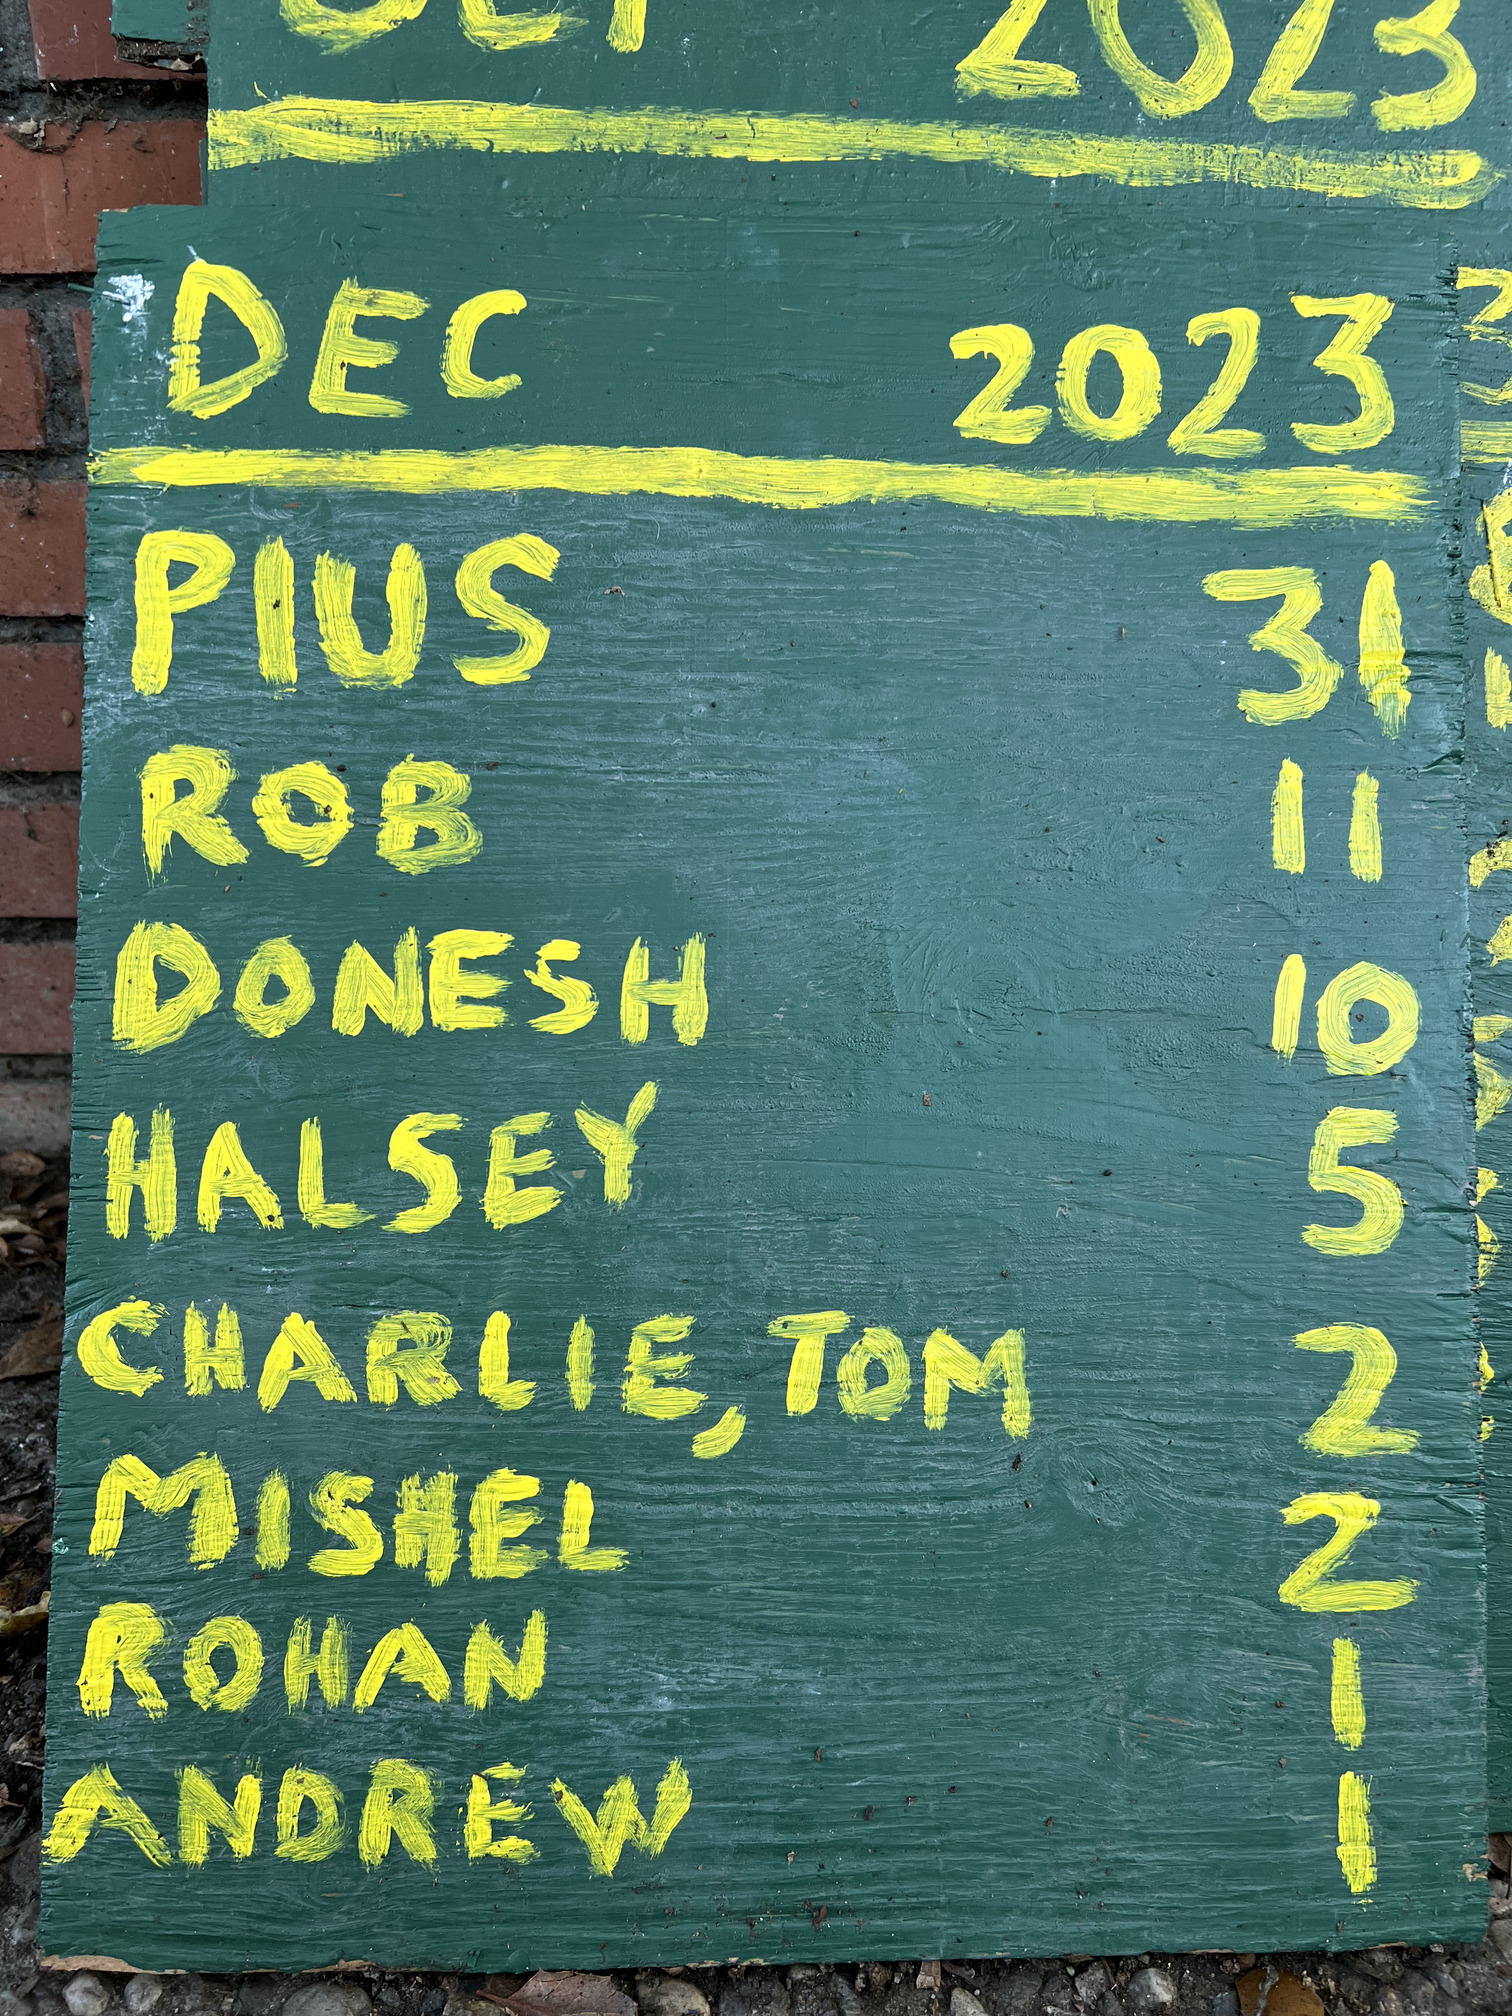 OCT 2023
DEC 2023
PIUS 31
ROB 11
DONESH 10
HALSEY 5
CHARLIE, TOM 2
MISHEL 2
ROHAN 1
ANDREW 1